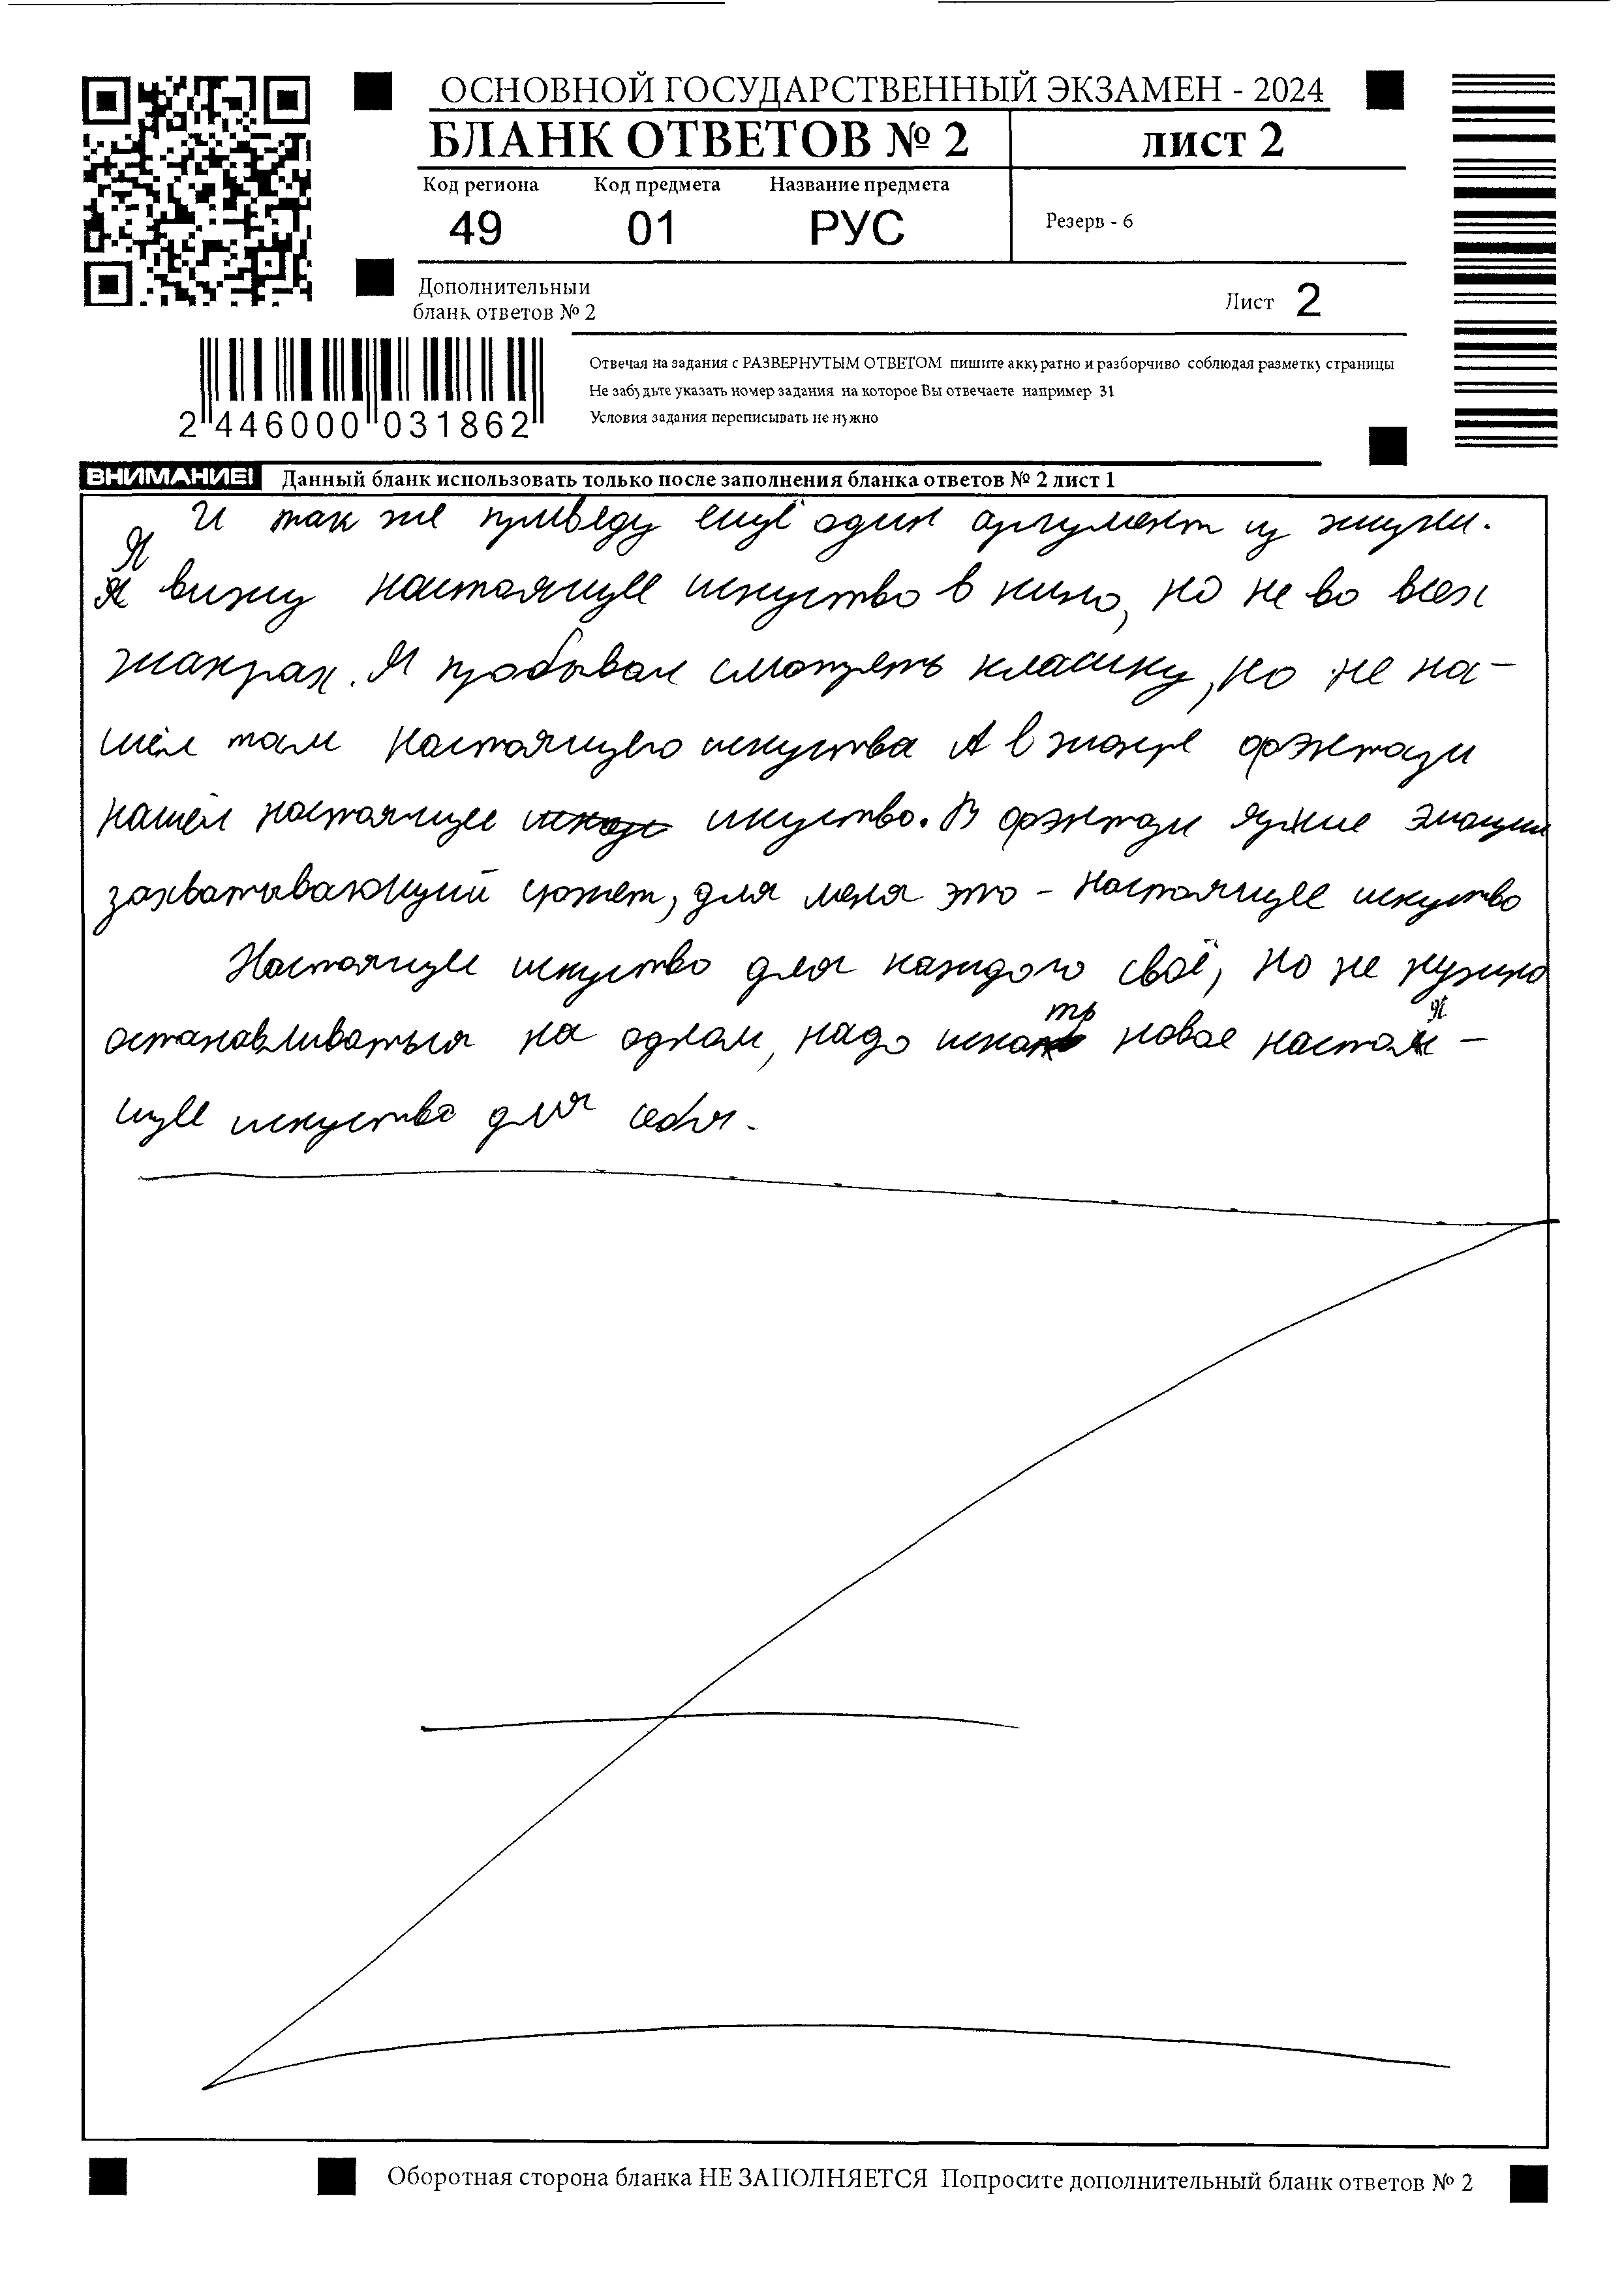 ОСНОВНОЙ ГОСУДАРСТВЕННЫЙ ЭКЗАМЕН - 2024
БЛАНК ОТВЕТОВ № 2 лист 2
Код региона Код предмета Название предмета
49 01 РУС Резерв - 6
Дополнительный
бланк ответов № 2
Лист 2
Отвечая на задания с РАЗВЕРНУТЫМ ОТВЕТОМ пишите аккуратно и разборчиво соблюдая разметку страницы
Не забудьте указать номер задания на которое Вы отвечаете например 31
Условия задания переписывать не нужно
2 446000 031862
ВНИМАНИЕ! Данный бланк использовать только после заполнения бланка ответов № 2 лист 1
И так же приведу ещё один аргумент из жизни.
Я вижу настоящее искуство в кино, но не во всех
жанрах. Я пробывал смотреть класику, но не на-
шёл там настоящего искуства А в жанре фэнтази
нашёл настоящее искуство. В фэнтази яркие эмоции
захватывающий сюжет, для меня это - настоящее искуство
Настоящее искуство для каждого своё, но не нужно
останавливаться на одном, надо искать новое настоя-
щее искуство для себя.
Оборотная сторона бланка НЕ ЗАПОЛНЯЕТСЯ Попросите дополнительный бланк ответов № 2